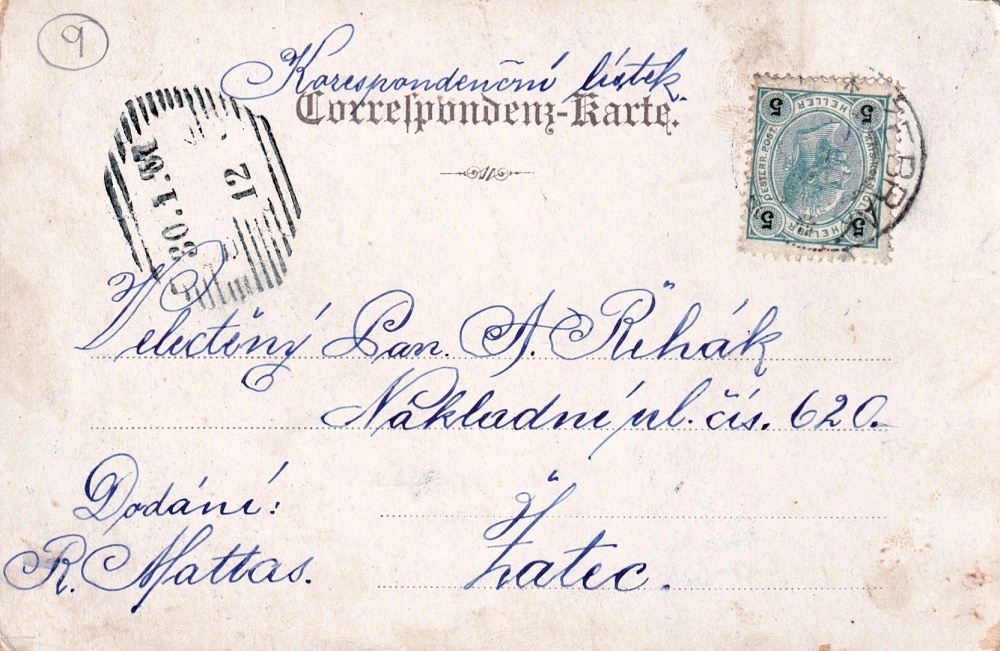 9
Korespondenční lístek
Correspondenz-Karte.
5 HELLER 5
OESTERR. POST
5 HELLER 5
12
Velectěný Pan. A. Řihák
Nákladní ul. čís. 620.
Dodání:
R. Mattas.
Ž
Žatec.